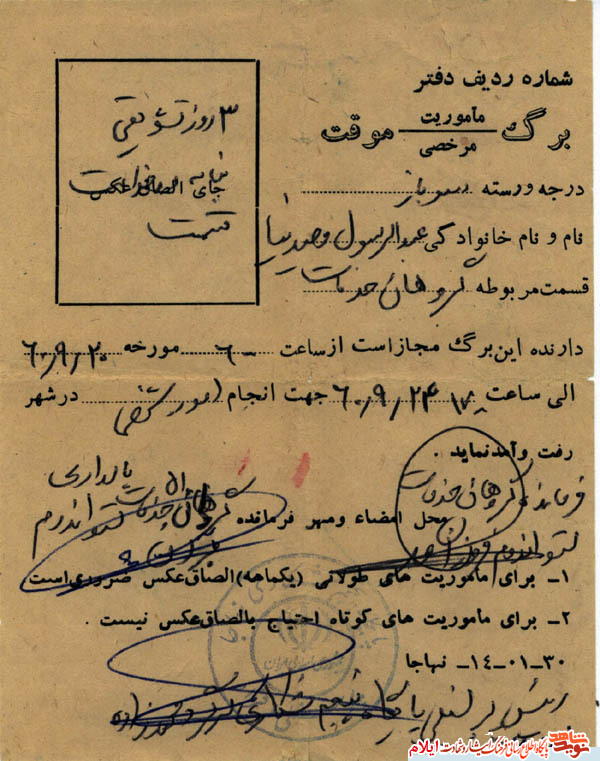 شماره ردیف دفتر
برگ ماموریت موقت
مرخصی
۳ روز تشویقی
جای الصاق عکس
قسمت
درجه ورسته سرباز
نام و نام خانوادگی عبدالرسول
قسمت مربوطه گروهان خدمات
دارنده این برگ مجاز است از ساعت ۶۰۰ مورخه ۶۰٫۹٫۲۰
الی ساعت ۱۷۰۰ ۶۰٫۹٫۲۴ جهت انجام امور شخصی در شهر
رفت و آمد نماید .
فرمانده گروهان خدمات پایداری
محل امضاء و مهر فرمانده گروهان خدمات
۱- برای ماموریت های طولانی (یکماهه) الصاق عکس ضروری است
۲- برای ماموریت های کوتاه احتیاج بالصاق عکس نیست .
۳۰-۰۱-۱۴- نهاجا
رئیس پرسنلی پایگاه
نوید شاهد پایگاه اطلاع رسانی فرهنگ ایثار و شهادت ایلام